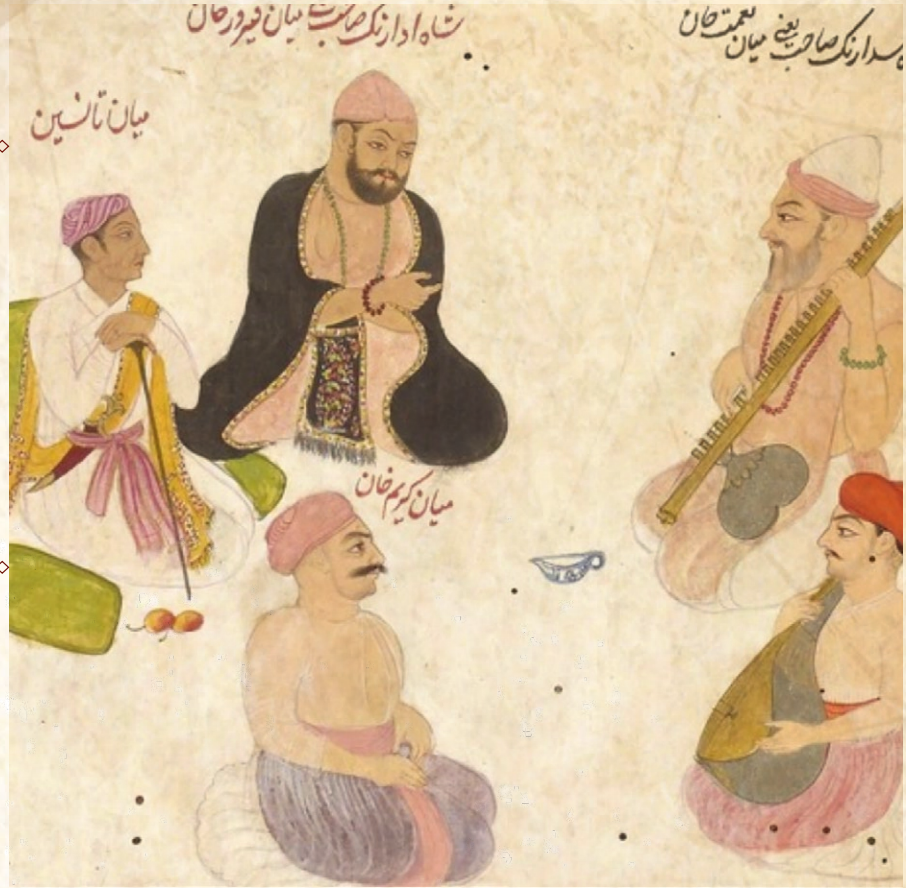 شاه ادارنک صاحب میان فیروز خان
سدارنک صاحب یعنے میان نعمت خان
میان تانسین
میان کریم خان